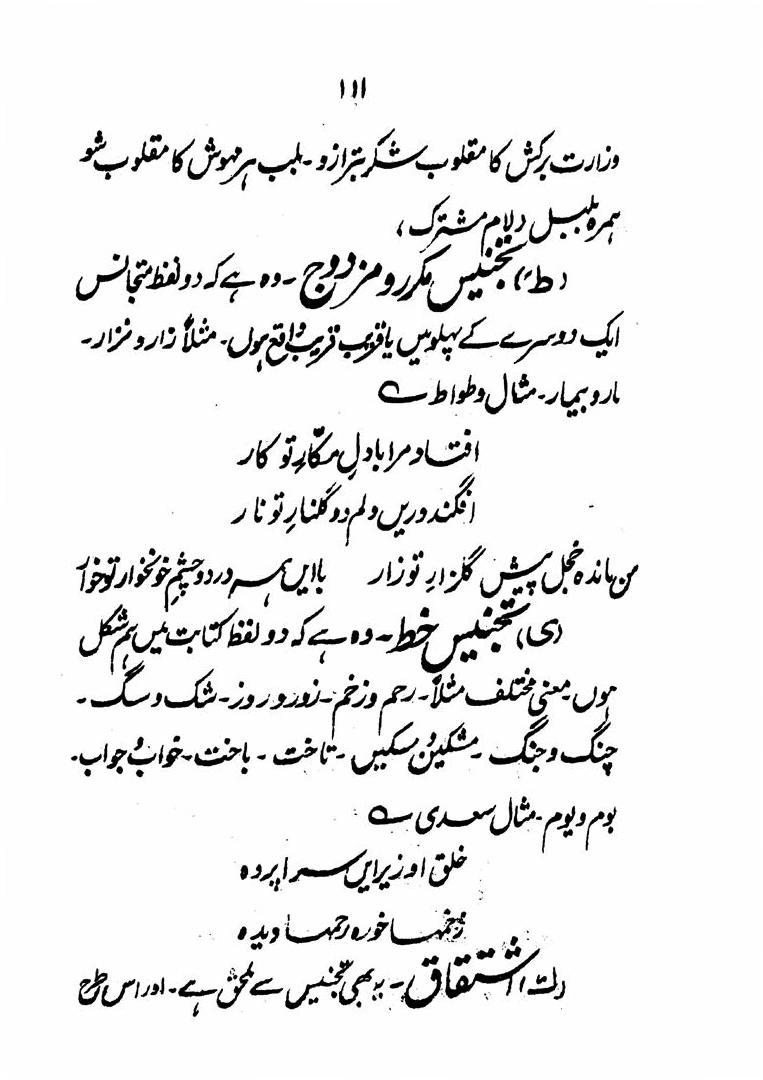 ۱۱۱
وزارت برکش کا مقلوب شکر بترازو۔ بلب ہر مہوش کا مقلوب شو
ہمرہ بلبل دلام مشترک،
(ط) تجنیس مکرر و مزدوج۔ وہ ہے کہ دو لفظ متجانس
ایک دوسرے کے پہلو میں یا قریب قریب واقع ہوں۔ مثلاً زار و نزار۔
مار و بیمار۔ مثال وطواط ؎
افتاد مرا بادلِ مکّارِ تو کار
افگند دریں دلم دو گلنارِ تو نار
من ماندہ خجل پیش گلزارِ تو زار    باایں ہمہ در دو چشمِ خونخوار تو خوار
(ی) تجنیس خط۔ وہ ہے کہ دو لفظ کتابت میں ہم شکل
ہوں۔ معنی مختلف مثلاً۔ رحم و زخم۔ زور و روز۔ شک و سگ۔
چنگ و جنگ۔ مشکین و مسکین۔ تاخت۔ باخت۔ خواب و جواب۔
بوم و یوم۔ مثال سعدی ؎
خلق او زیر ایں سراپردہ
زخمہا خوردہ رحمہا دیدہ
(ک) اشتقاق۔ یہ بھی تجنیس سے ملحق ہے۔ اور اس طرح